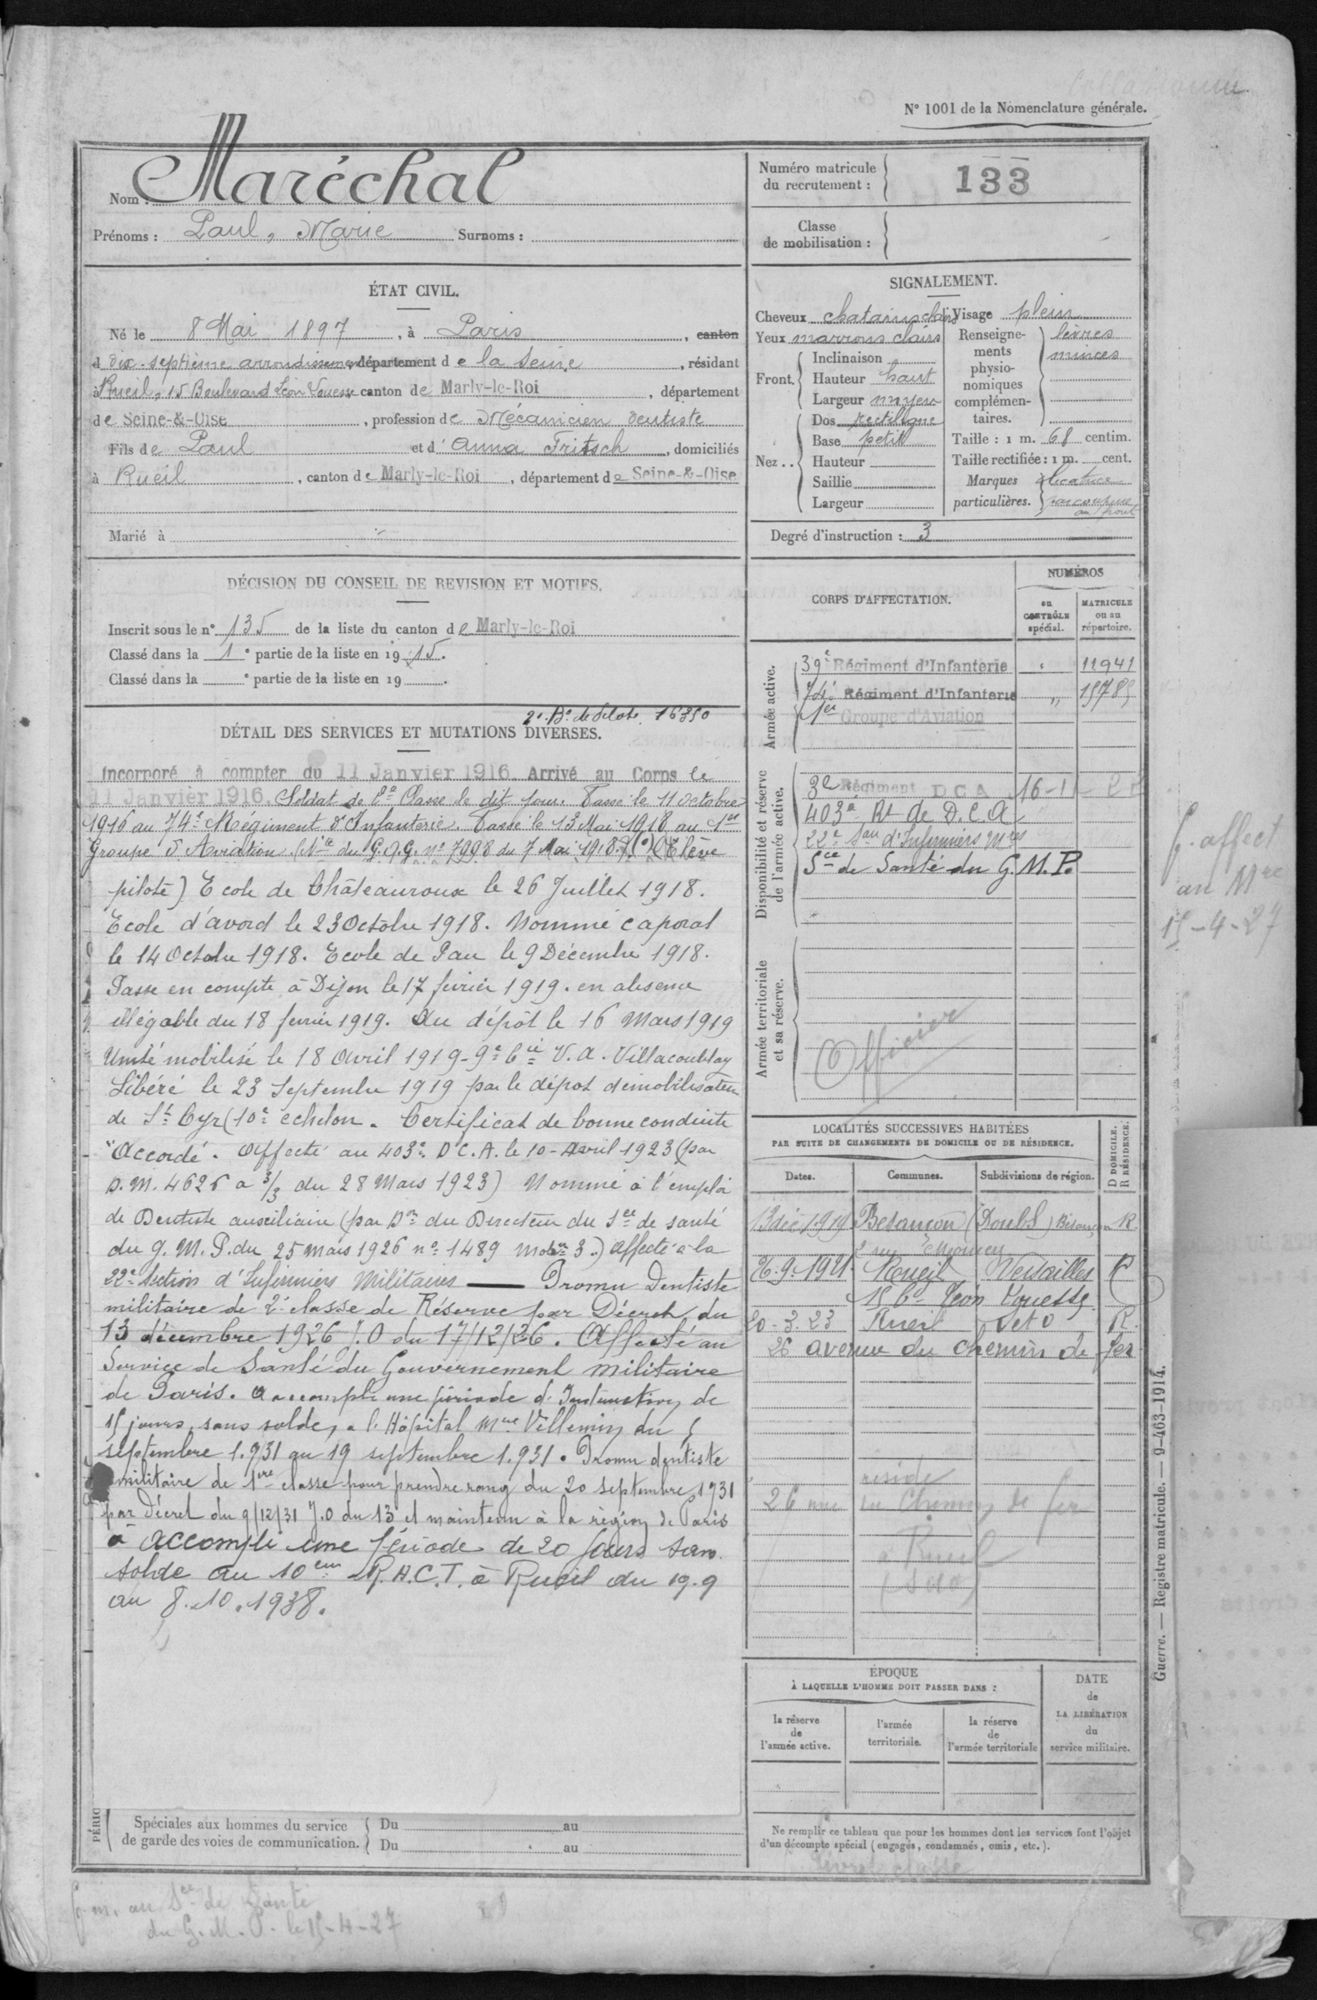 N° 1001 de la Nomenclature générale.
Nom : Maréchal
Prénoms : Paul, Marie Surnoms :
Numéro matricule
du recrutement : 133
Classe
de mobilisation :
ÉTAT CIVIL.
Né le 8 Mai 1897, à Paris, canton
d dix-septième arrondissement département de la Seine, résidant
à Rueil, 15 Boulevard canton de Marly-le-Roi, département
de Seine-&-Oise, profession de Mécanicien dentiste
Fils de Paul et d'Anna Fritsch, domiciliés
à Rueil, canton de Marly-le-Roi, département de Seine-&-Oise
Marié à
SIGNALEMENT.
Cheveux chatains clairs Visage plein
Yeux marrons clairs
Front. Inclinaison
Hauteur haut
Largeur moyen
Nez.. Dos rectiligne
Base petit
Hauteur
Saillie
Largeur
Renseigne-
ments
physio-
nomiques
complémen-
taires.
lèvres
minces
Taille : 1 m. 68 centim.
Taille rectifiée : 1 m. cent.
Marques
particulières.
cicatrice
au front
Degré d'instruction : 3
DÉCISION DU CONSEIL DE REVISION ET MOTIFS.
Inscrit sous le n° 135 de la liste du canton de Marly-le-Roi
Classé dans la 1e partie de la liste en 1915.
Classé dans la e partie de la liste en 19 .
2° Bt de Pilote 16350
DÉTAIL DES SERVICES ET MUTATIONS DIVERSES.
Incorporé à compter du 11 Janvier 1916. Arrivé au Corps le
11 Janvier 1916. Soldat de 2e Classe le dit jour. Passé le 11 octobre
1916 au 74e Régiment d'Infanterie. Passé le 13 Mai 1918 au 1er
Groupe d'Aviation du G.Q.G. n° 7998 du 7 Mai 1918. (Elève
pilote) Ecole de Châteauroux le 26 Juillet 1918.
Ecole d'avord le 23 Octobre 1918. Nommé caporal
le 14 Octobre 1918. Ecole de Pau le 9 Décembre 1918.
Passe en compte à Dijon le 17 février 1919. en absence
illégable du 18 fevrier 1919. Au dépôt le 16 Mars 1919
Unité mobilisé le 18 Avril 1919 - 9e Cie V.A. Villacoublay
Libéré le 23 Septembre 1919 par le dépot démobilisateur
de St Cyr (10e echelon. Certificat de bonne conduite
"Accordé. Affecté au 403e D.C.A. le 10-Avril 1923 (par
D.M. 4626 a 3/3 du 28 Mars 1923) Nommé à l'emploi
de Dentiste auxiliaire (par Don du Directeur du Sce de santé
du G.M.P. du 25 mars 1926 n° 1489 3.) affecté à la
22e Section d'Infirmiers Militaires — Promu Dentiste
militaire de 2e classe de Réserve par Décret du
13 décembre 1926 J.O du 17/12/26. Affecté au
Service de Santé du Gouvernement militaire
de Paris. a accompli une période d'Instruction de
15 jours, sans solde, à l'Hôpital Mre Villemin du 5
septembre 1.931 au 19 septembre 1.931. Promu dentiste
militaire de 1ère classe pour prendre rang du 20 septembre 1931
par Décret du 9/12/31 J.O du 13 et maintenu à la région de Paris
a accompli une période de 20 jours sans
solde au 10em R.A.C.T. à Rueil du 19.9
au 8.10.1938.
CORPS D'AFFECTATION.
NUMÉROS
au
CONTRÔLE
spécial.
MATRICULE
ou au
répertoire.
Armée active.
39e Régiment d'Infanterie 11941
74e Régiment d'Infanterie 15785
1er Groupe d'Aviation
Disponibilité et réserve
de l'armée active.
3e Régiment DCA
403e Rt de D.C.A
22e Son d'Infirmiers Mres
Sce de Santé du G.M.P.
Armée territoriale
et sa réserve.
Officier
f. affect
au Mre
15-4-27
LOCALITÉS SUCCESSIVES HABITÉES
PAR SUITE DE CHANGEMENTS DE DOMICILE OU DE RÉSIDENCE.
Dates. Communes. Subdivisions de région. D DOMICILE. R RÉSIDENCE.
13 déc 1919 Besancon (Doubs) Besançon R.
26.9.1921 Rueil Versailles R
20-3.23 Rueil S et O R.
26 avenue du chemin de fer
reside
26 rue du Chemin de fer
à Rueil
(S&O)
ÉPOQUE
À LAQUELLE L'HOMME DOIT PASSER DANS :
la réserve
de
l'armée active.
l'armée
territoriale.
la réserve
de
l'armée territoriale
DATE
de
LA LIBÉRATION
du
service militaire.
Ne remplir ce tableau que pour les hommes dont les services font l'objet
d'un décompte spécial (engagés, condamnés, omis, etc.).
PÉRIO
Spéciales aux hommes du service
de garde des voies de communication.
Du au
Du au
Guerre. — Registre matricule. — 9-463-1914.
au Sce de Santé
du G.M.P. le 15-4-27